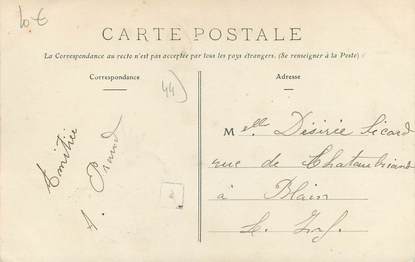 10€
CARTE POSTALE
La Correspondance au recto n'est pas acceptée par tous les pays étrangers. (Se renseigner à la Poste)
Correspondance
Adresse
44)
Amitiés
A. Praud
Melle Désirée Sicard
rue de Chateaubriand
à Blain
L. Inf.